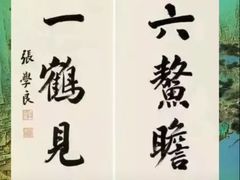 六鰲瞻
一鶴見
張學良